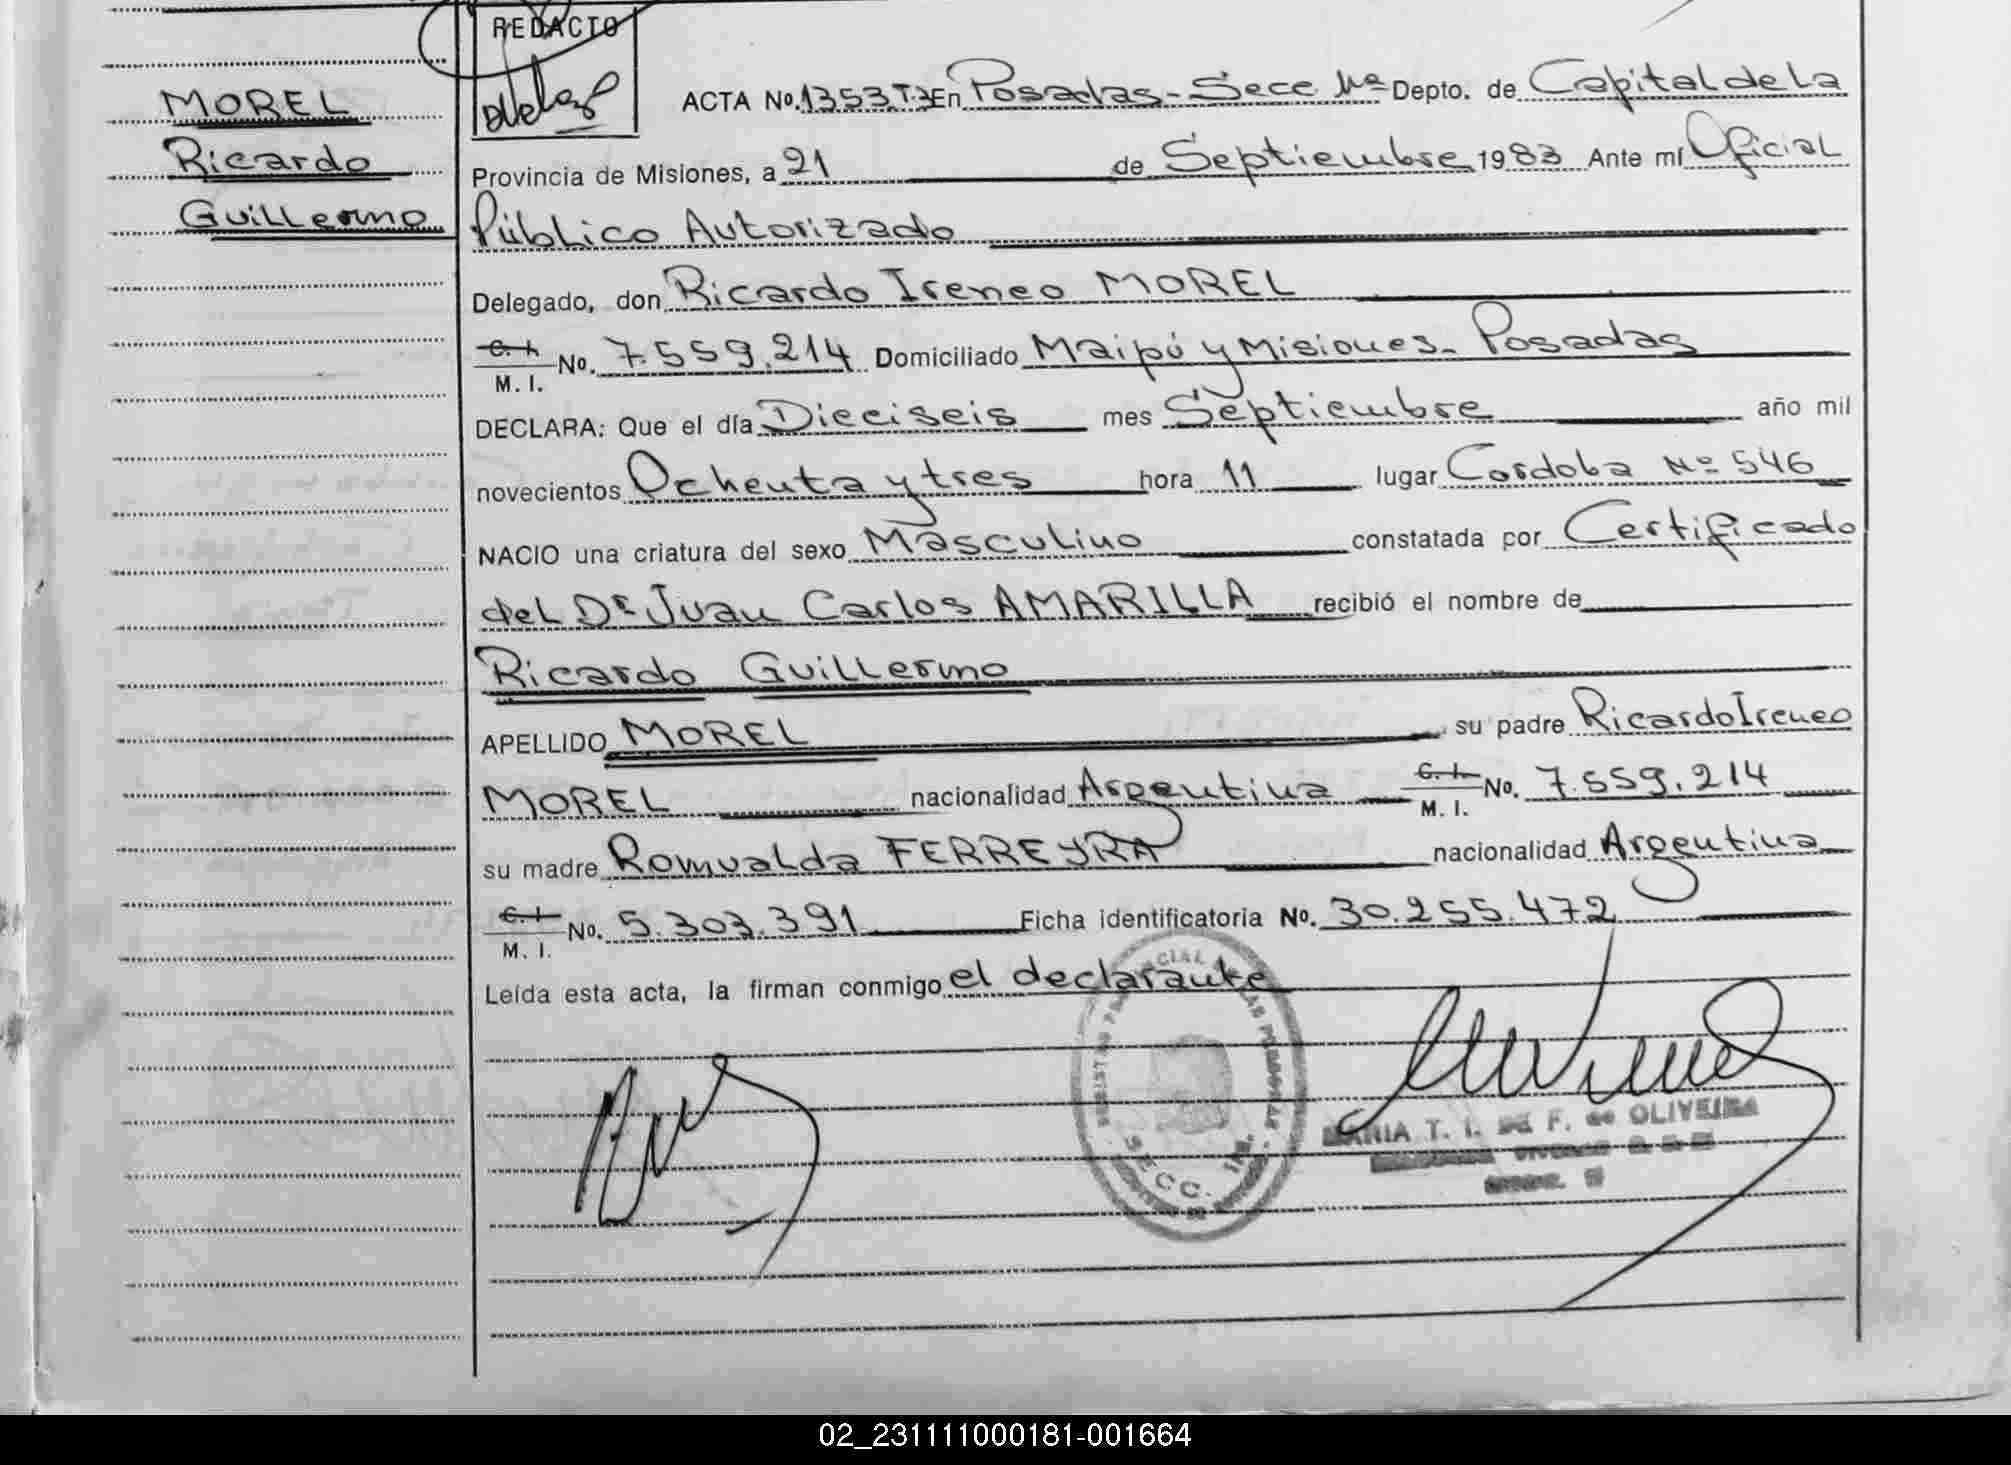 REDACTO
MOREL
Ricardo
Guillermo
ACTA No. 1353.T3 En Posadas - Secc Depto. de Capital de La
Provincia de Misiones, a 21 de Septiembre 1983 Ante mí Oficial
Público Autorizado
Delegado, don Ricardo Ireneo MOREL
C. I. M. I. No. 7.559.214 Domiciliado Maipú y Misiones - Posadas
DECLARA: Que el día Dieciseis mes Septiembre año mil
novecientos Ochenta y tres hora 11 lugar Cordoba Nº 546
NACIO una criatura del sexo Masculino constatada por Certificado
del Dr Juan Carlos AMARILLA recibió el nombre de
Ricardo Guillermo
APELLIDO MOREL su padre Ricardo Ireneo
MOREL nacionalidad Argentina C. I. M. I. No. 7.559.214
su madre Romualda FERREYRA nacionalidad Argentina
C. I. M. I. No. 5.303.391 Ficha identificatoria No. 30.255.472
Leída esta acta, la firman conmigo el declarante
SECC.
MARIA T. I. DE F. de OLIVEIRA
02_231111000181-001664